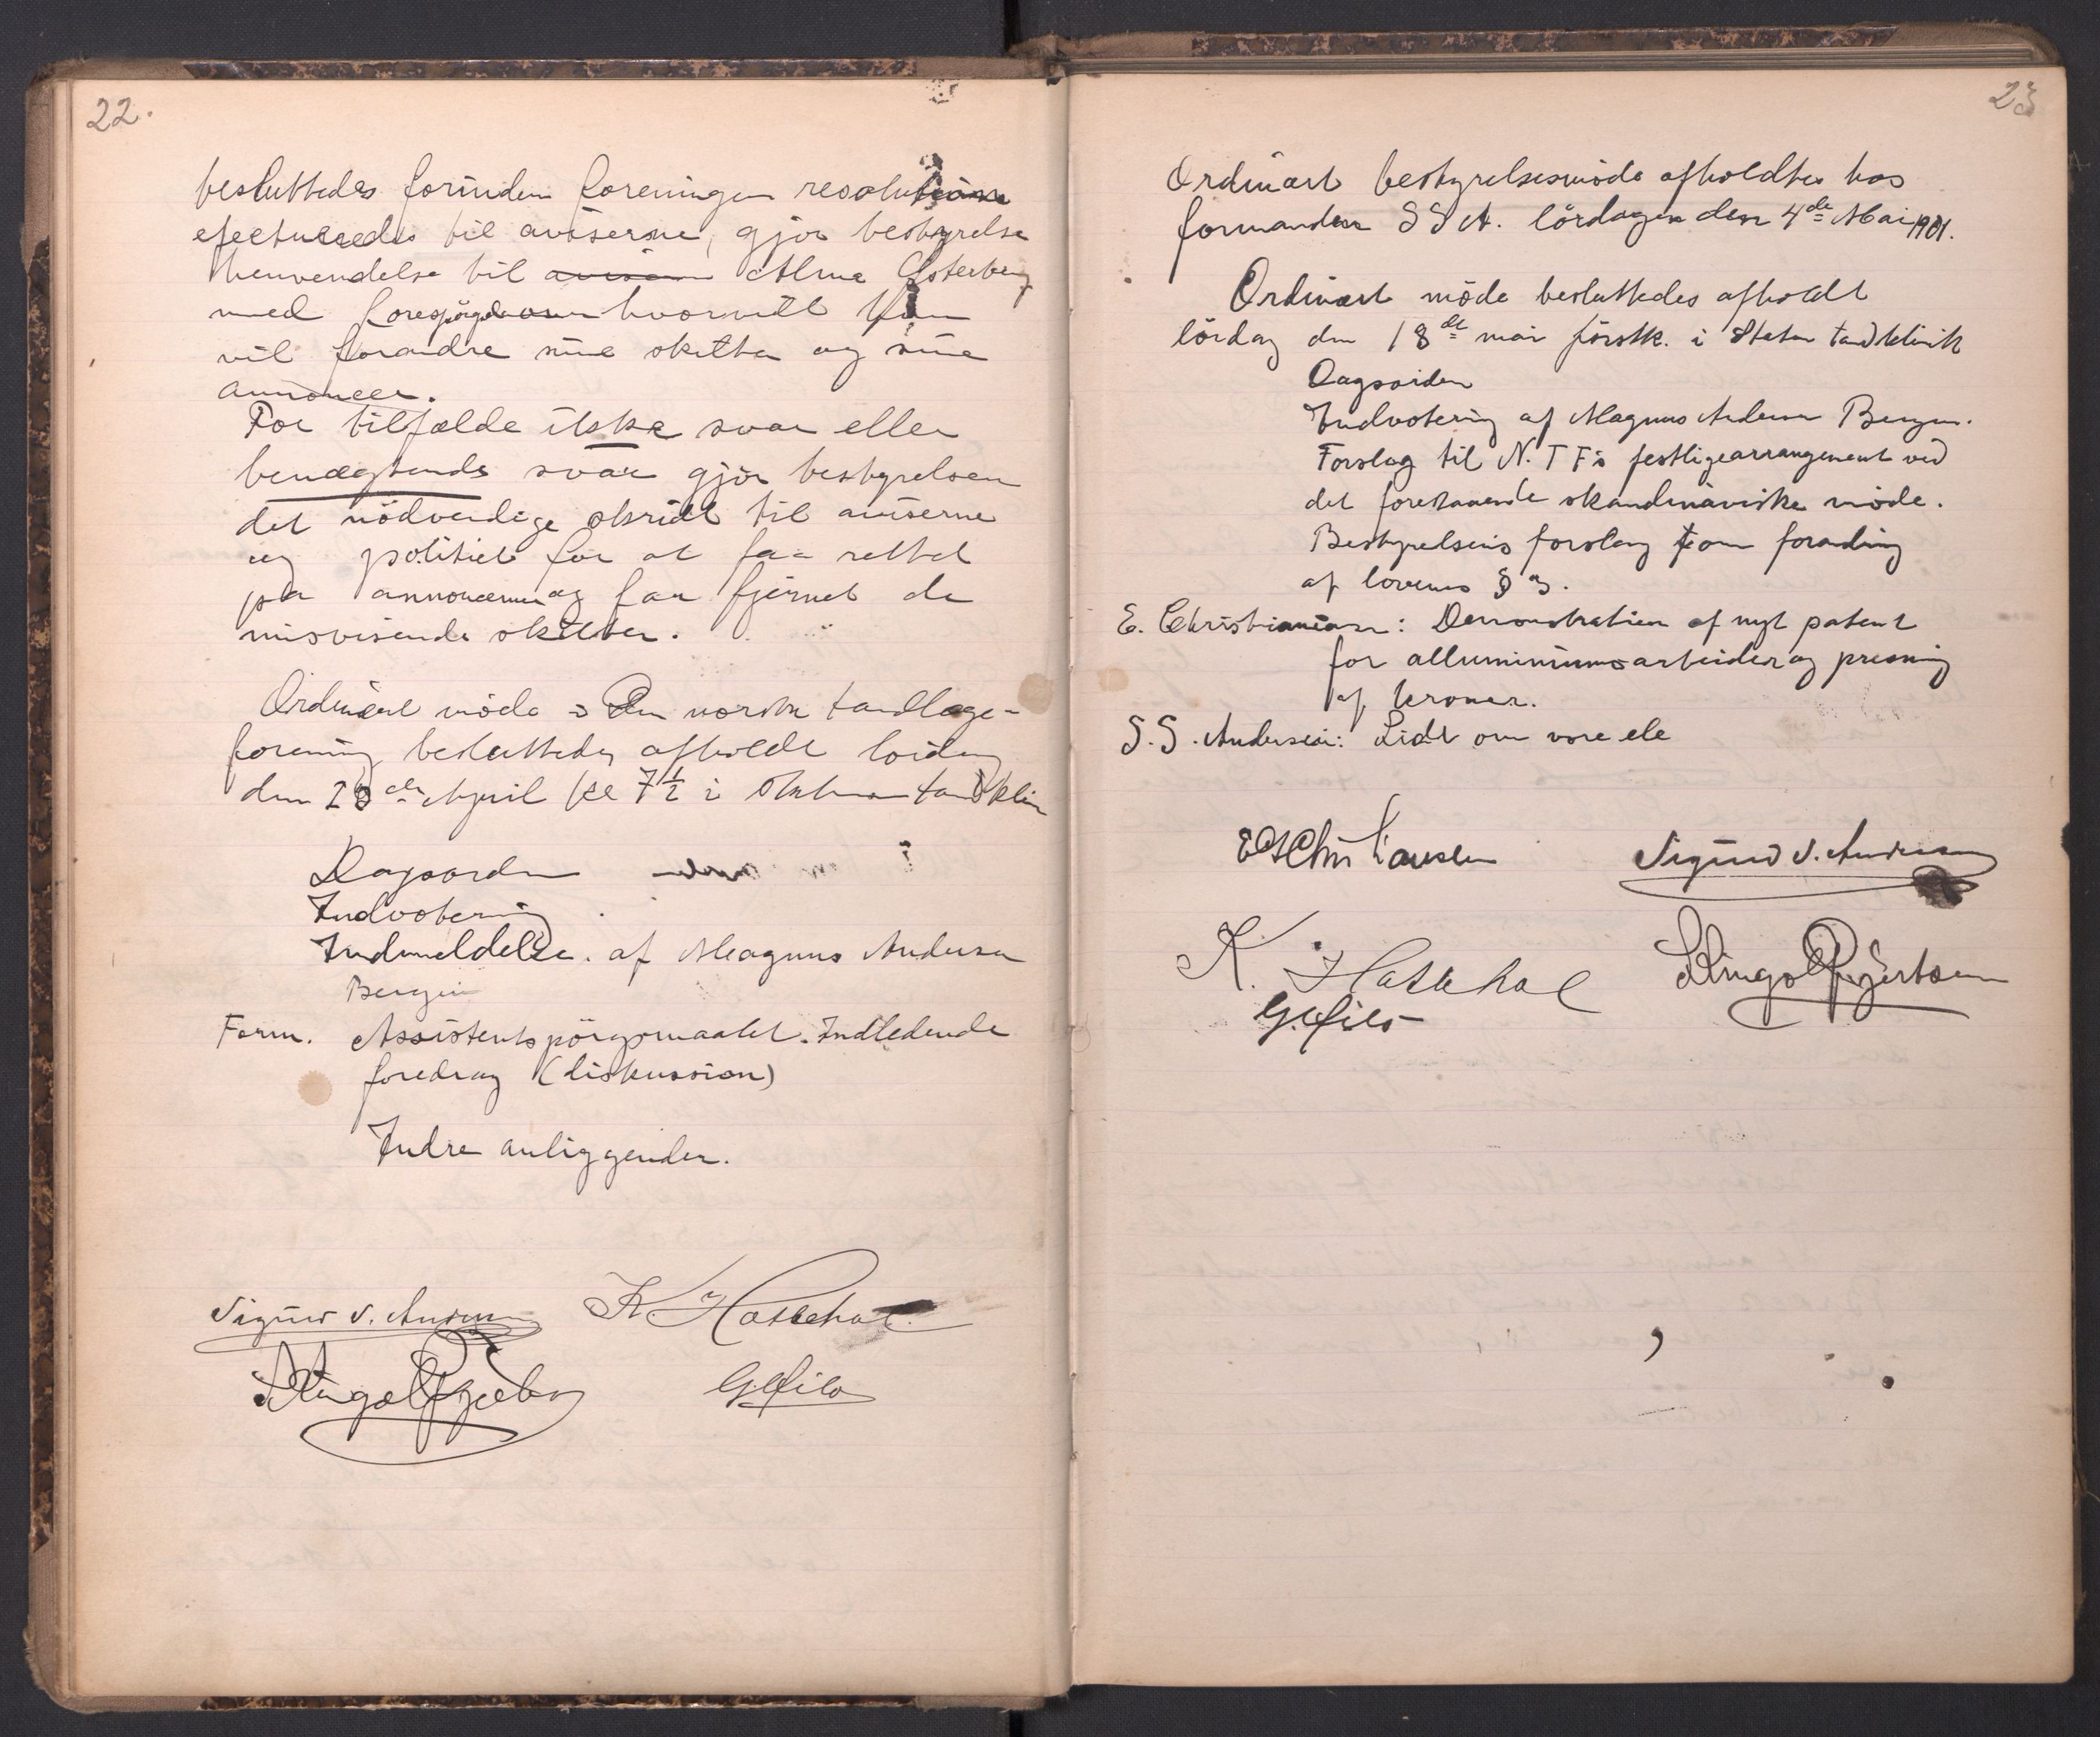 22.
besluttedes forinden foreningen resolution
efectueredes til aviserne, gjør bestyrelse
henvendelse til avisen Alma Østerberg
med forespørgsel om hvorvidt hun
vil forandre sine skilter og sine
annoncer.
For tilfælde ikke svar eller
benægtende svar gjør bestyrelsen
det nødvendige skridt til aviserne
og politiet for at faa rettet
paa annoncerne og faa fjernet de
misvisende skilter.
Ordinært møde i Den norske tandlæge-
forening besluttedes afholdt lørdag
den de April kl 7½ i Statens tandklin
Dagsorden
Indvotering
Indmeldelse. af Magnus Andersen
Bergen
Form. Assistentspørgsmaalet. Indledende
foredrag (diskussion)
Indre anliggender.
Sigurd S. Andersen K. Hasschal
G. Milo
23
Ordinært bestyrelsesmøde afholdtes hos
formanden S S A. lørdagen den 4de Mai 1901.
Ordinært møde besluttedes afholdt
lørdag den 18de mai førstk. i Statens tandklinik
Dagsorden
Indvotering af Magnus Andersen Bergen.
Forslag til N. T F's festligearrangement ved
det forestaaende skandinaviske møde.
Bestyrelsens forslag om forandring
af lovenes § 3.
E. Christiansen: Demonstration af nyt patent
for alluminiumsarbeider og presning
af kroner.
S. S. Andersen: Lidt om vore ele
E Christiansen Sigurd S. Andersen
K. Hasschal
G. Milo